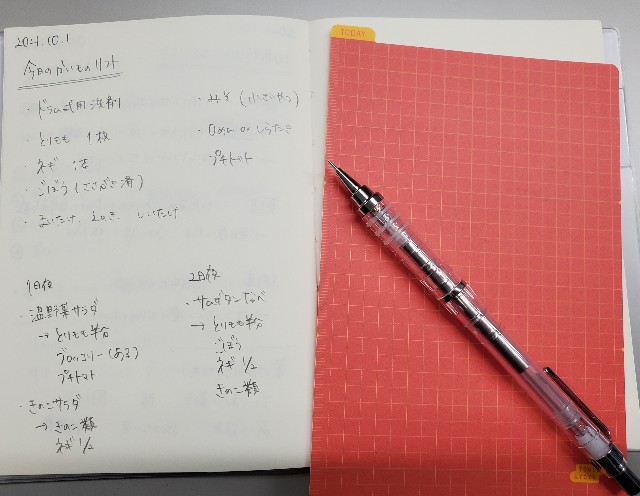 2021.10.1
今日のかいものリスト
・ドラム式用洗剤
・とりもも 1枚
・ネギ 1本
・ごぼう(ささがき済)
・まいたけ、えのき、しいたけ
・みそ(小さいやつ)
・0めん or しらたき
プチトマト
1日夜
・温野菜サラダ
→ とりもも半分
ブロッコリー(ある)
プチトマト
・きのこサラダ
→ きのこ類
ネギ 1/2
2日夜
・サムゲタンなべ
→ とりもも半分
ごぼう
ネギ 1/2
きのこ類
TODAY